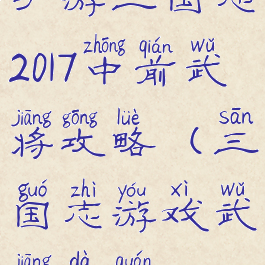 2017 zhōng qián wǔ
2017中前武
jiāng gōng lüè sān
将攻略（三
guó zhì yóu xì wǔ
国志游戏武
jiāng dà quán